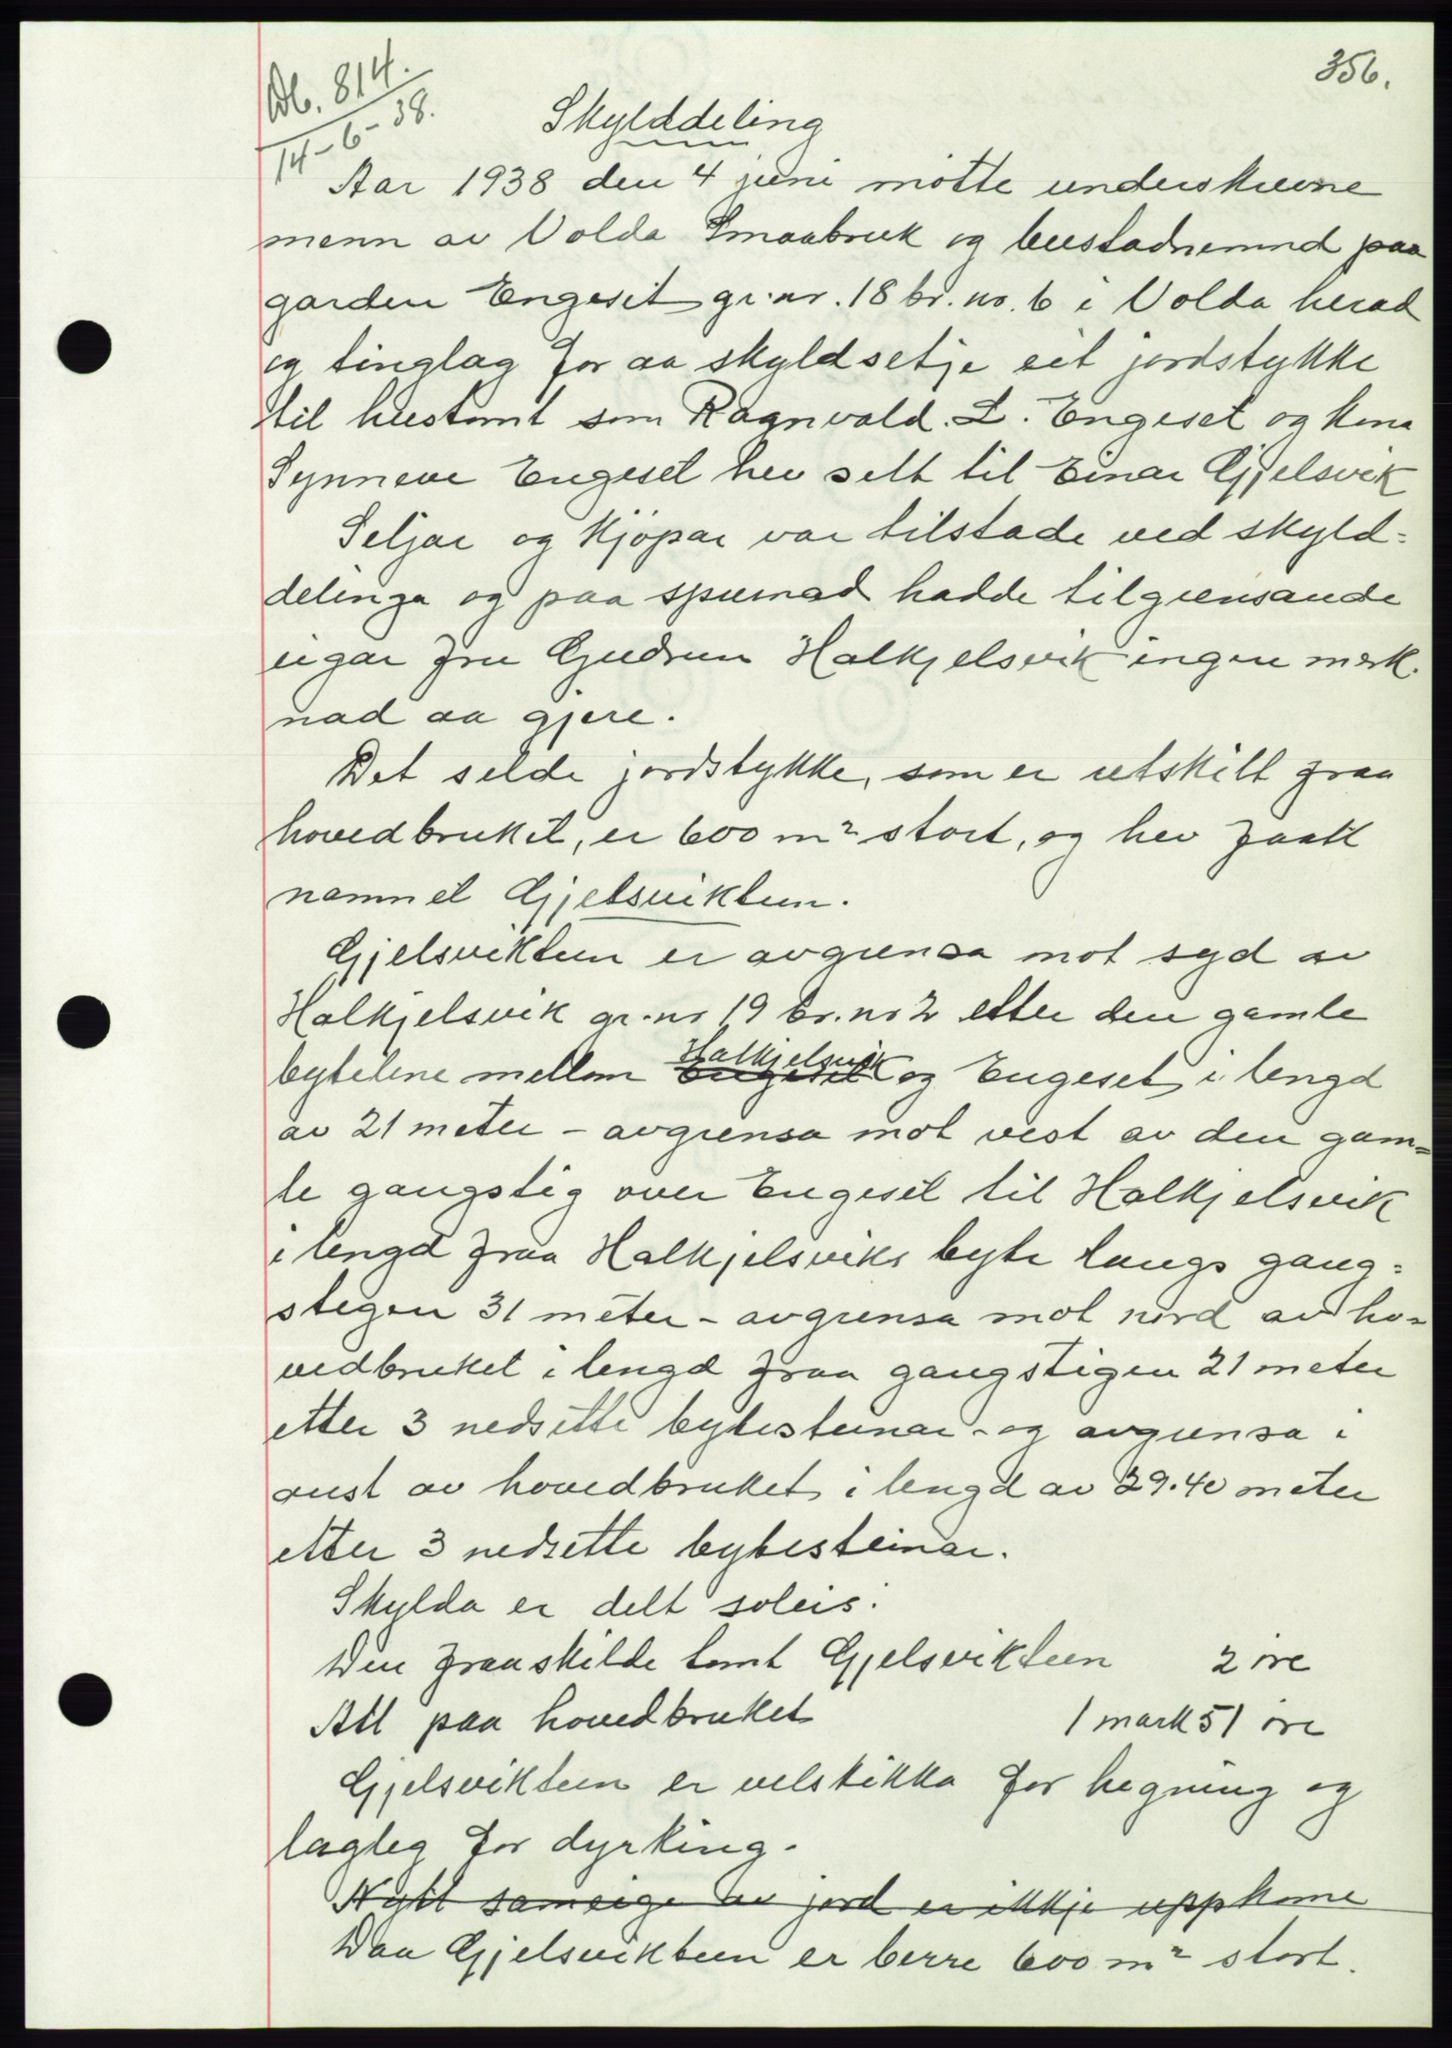 356.
Db. 814.
14-6-38.
Skylddeling
Aar 1938 den 4 juni møtte underskrevne
menn av Volda Smaabruk og bustadnemnd paa
garden Engeset gr.nr. 18 br.no. 6 i Volda herad
og tinglag for aa skyldsetje eit jordstykke
til hustomt som Ragnvald L. Engeset og kona
Synneve Engeset hev selt til Einar Gjelsvik
Seljar og Kjøpar var tilstade ved skyld=
delinga og paa spurnad hadde tilgrensande
eigar fru Gudrun Halkjelsvik ingen merk.
nad aa gjere.
Det selde jordstykke, som er utskilt fraa
hovedbruket, er 600 m² stort, og hev faatt
namnet Gjelsviktun.
Gjelsviktun er avgrensa mot syd av
Halkjelsvik gr.nr 19 br.nr 2 etter den gamle
byteline mellom Engeset Halkjelsvik og Engeset i lengd
av 21 meter - avgrensa mot vest av den gam=
le gangstig over Engeset til Halkjelsvik
i lengd fraa Halkjelsviks byte langs gang=
stigen 31 meter - avgrensa mot nord av ho=
vedbruket i lengd fraa gangstigen 21 meter
etter 3 nedsette bytesteinar - og avgrensa i
aust av hovedbruket i lengd av 29.40 meter
etter 3 nedsette bytesteinar.
Skylda er delt soleis:
Den fraaskilde tomt Gjelsviktun 2 øre
Att paa hovedbruket 1 mark 51 øre
Gjelsviktun er velskikka for hegning og
lagleg for dyrking.
Nytt sameige av jord er ikkje uppkome
Daa Gjelsviktun er berre 600 m² stort.